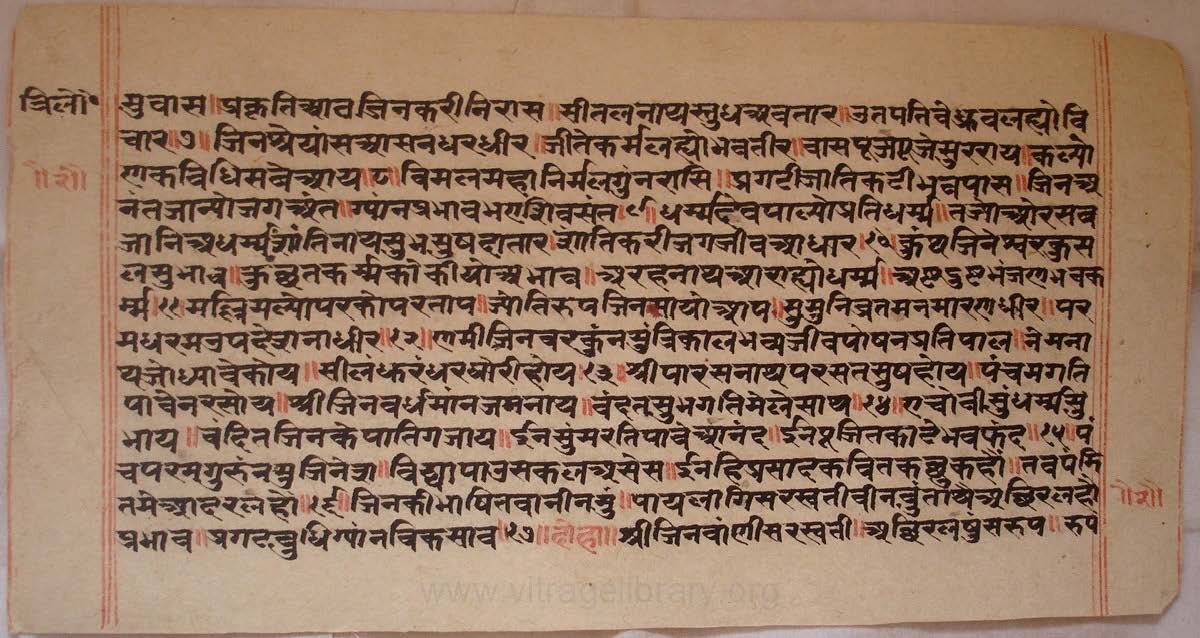 त्रिलो॰
सुवास॥प्रकृतिच्याव जिनकरीनिरास॥सीतलनाथसुधअवतार॥उतपतिवेध्रुवलह्योवि
चार॥७॥जिनश्रेयांसआसनधरधीर॥जीतेकर्मलह्योभवतीर॥वासपूजपूजेसुरराय॥कल्यां
णकविधिसबेआय॥८॥विमलमहानिर्मलगुंनरासि॥प्रगटीजातिकटीभुवपास॥जिनअ
नंतजान्योजगअंत॥ग्यानप्रभावभएशिवसंत॥९॥धर्म्मदेवपाल्योप्रतिधर्म्म॥तज्योओरसब
जानिअधर्म्म॥शांतिनाथसुभसुषदातार॥शांतिकरीजगजीवआधार॥१०॥कुंथजिनेस्वरकुस
लसुभाव॥कुछतकर्म्मकोकीयोअभाव॥अरहनाथआराह्योधर्म्म॥अष्टदुष्टभंजणभवक
र्म्म॥११॥मल्लिमल्योपरकोपरताप॥ज्योतिरूपजिनसाधोआप॥मुमुनिव्रतमनमारणधीर॥पर
मधरमउपदेशनाधीर॥१२॥णमीजिनवरकुंनमुंत्रिकाल॥भव्यजीवपोषनप्रतिपाल॥नेमना
थजोध्यावेकोय॥सीलंधुरंधरधोरीहोय॥१३॥श्रीपारसनाथपरसतसुषहोय॥पंचमगति
पावेनरसोय॥श्रीजिनवर्धमांनजगनाथ॥वंदतसुभगतिमेलेसाथ॥१४॥एचोवीसुंधर्म्मसु
भाय॥वंदितजिनकेपातिगजाय॥ईनसुंमरतिपावेआनंद॥ईनपूजितकाटेभवफंद॥१५॥पं
चपरमगुरुनमुजिनेश॥विद्यापाउसकलअसेस॥ईनहिप्रसादकवितकछुकहों॥तवपंडि
तमेआदरलहो॥१६॥जिनकीभाषितवानीनमुं॥पायलागिसरस्वतीवीनवुं॥ताथैअछिरलहों
प्रभाव॥प्रगटबुधिग्यांनविकसाव॥१७॥दोहा॥श्रीजिनवांणीसरस्वती॥अछिरलषुसरूप॥रूप
www.vitragelibrary.org